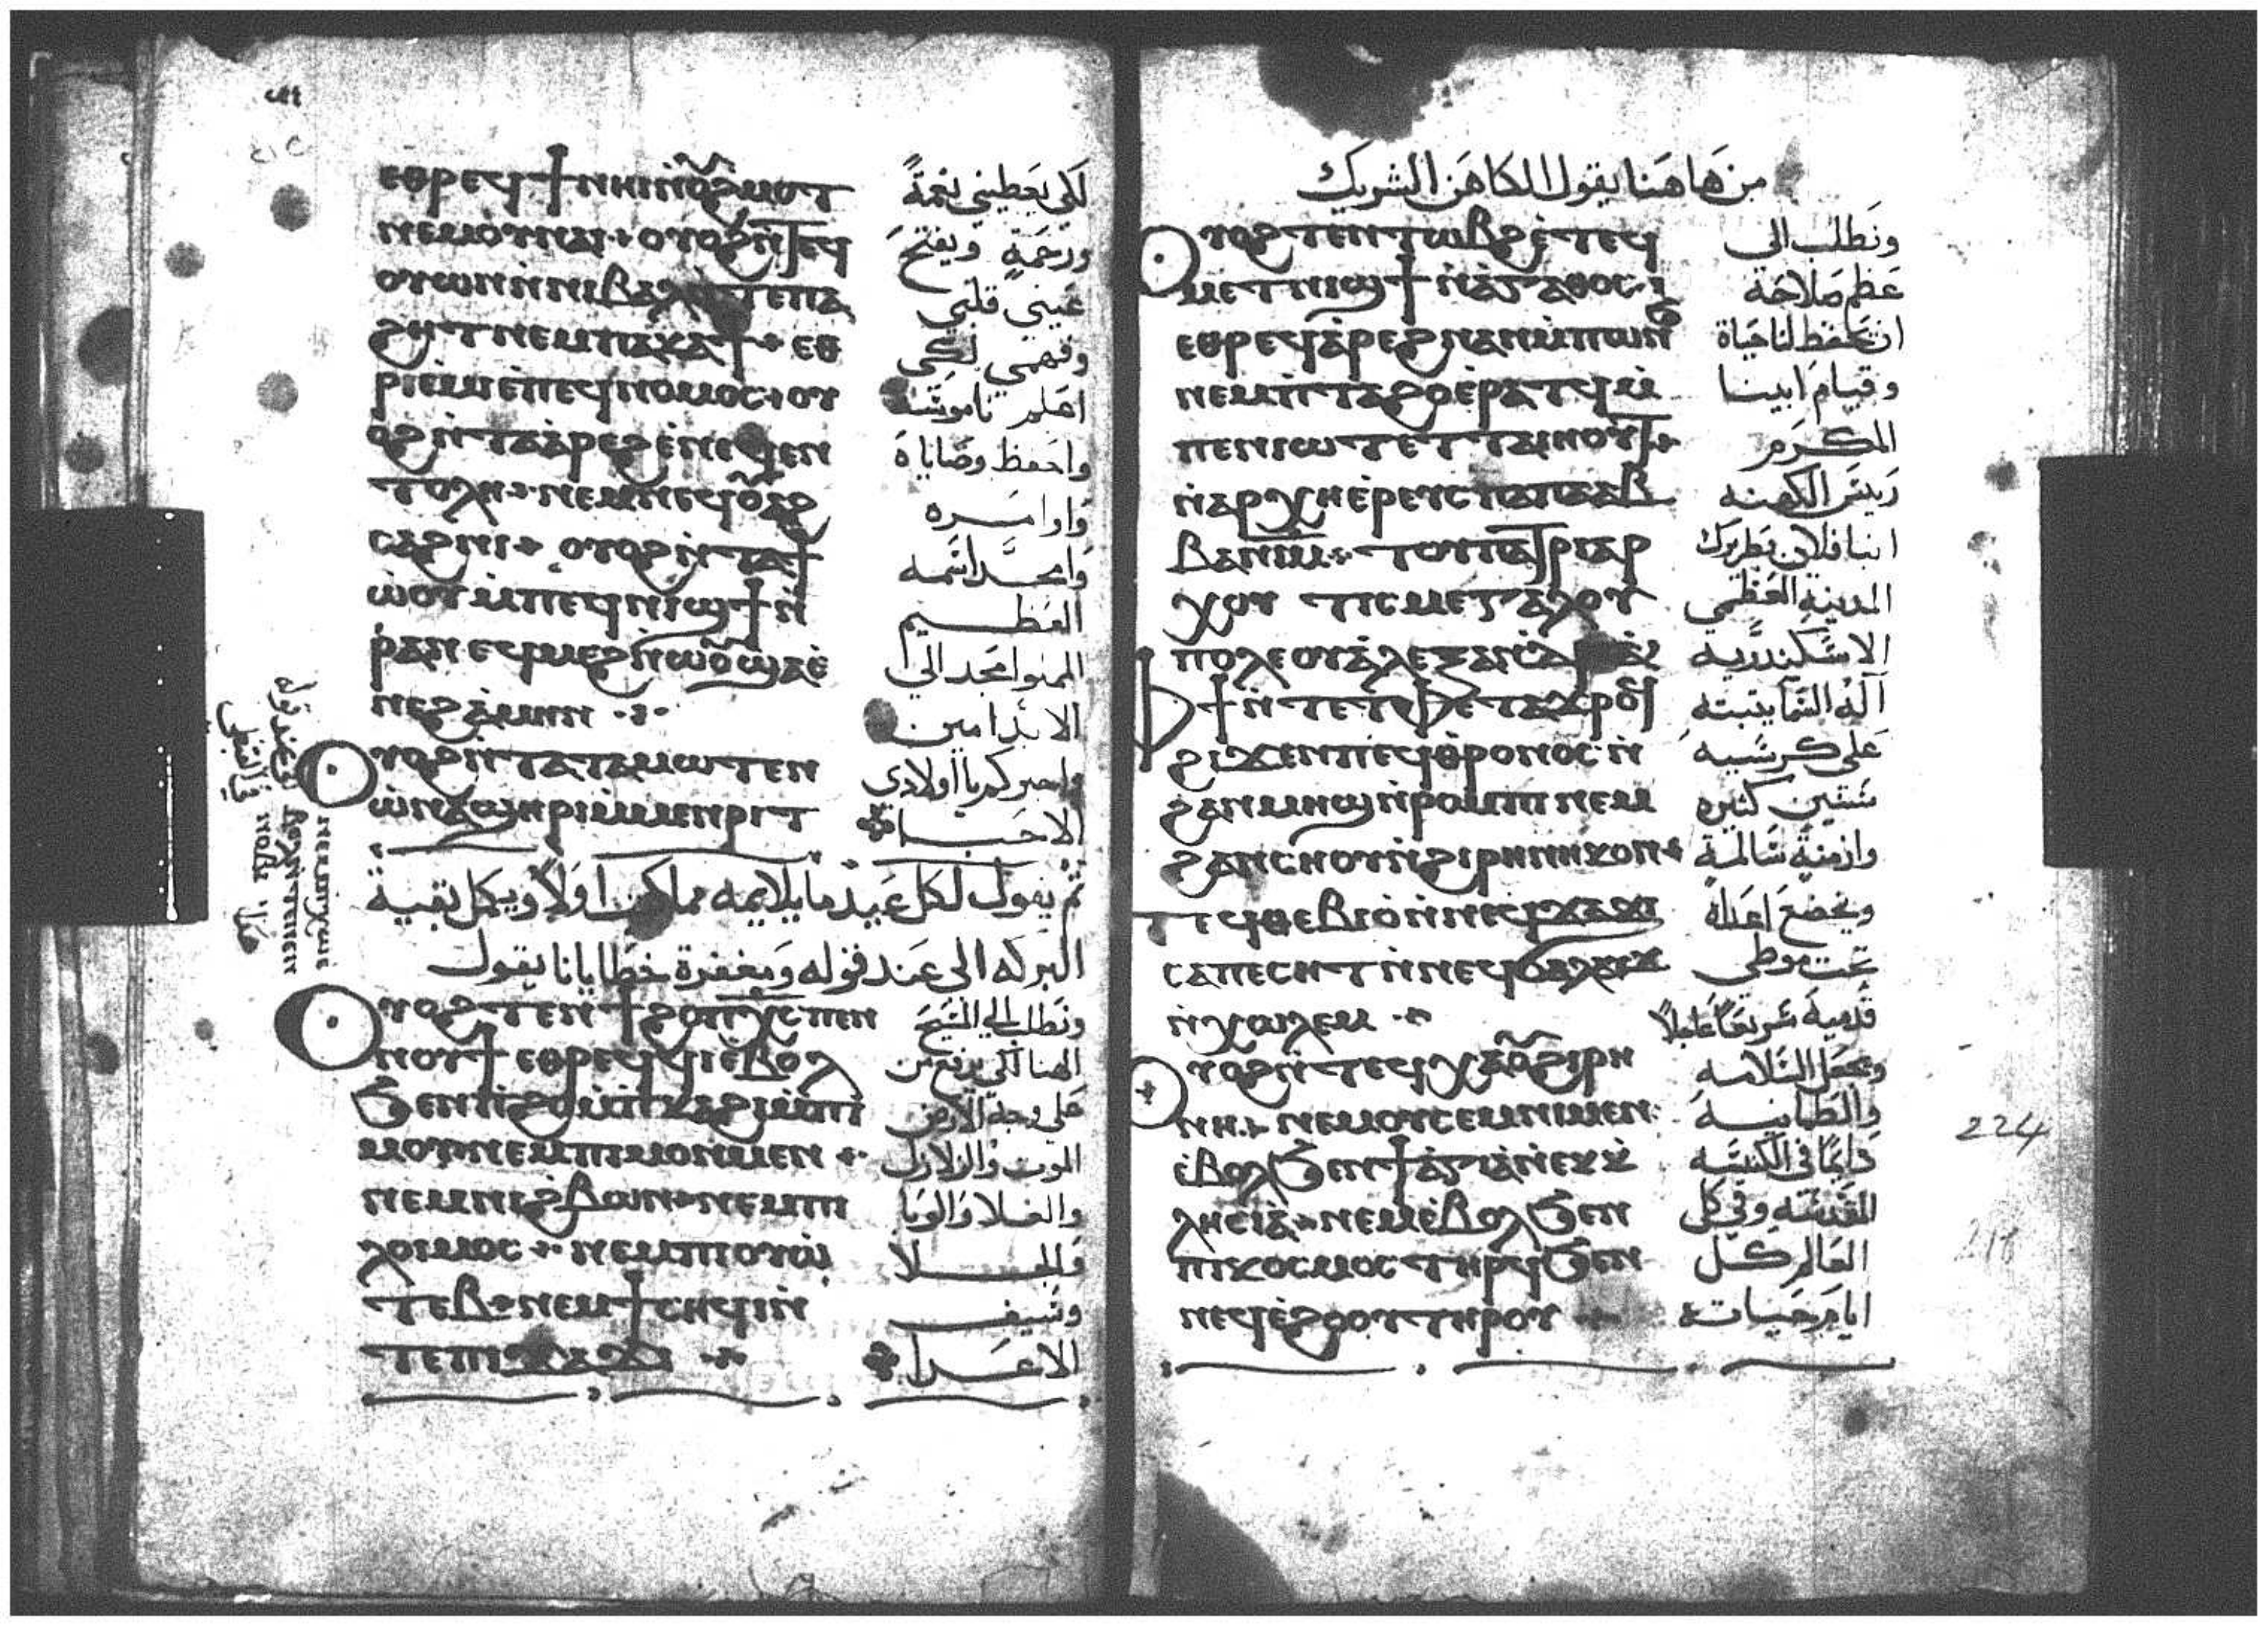 ⲉⲑⲣⲉϥϯⲛⲏⲓⲛ̀ⲟⲩϩⲙⲟⲧ لكي يعطيني نعمةً
ⲛⲉⲙⲟⲩⲛⲁⲓ ⲟⲩⲟϩⲛ̀ⲧⲉϥ ورحمةٍ ويفتح
ⲟⲩⲱⲛⲛ̀ⲛⲓⲃⲁⲗⲛ̀ⲧⲉⲡⲁ عيني قلبي
ϩⲏⲧⲛⲉⲙⲡⲁⲕⲁϯ ⲉⲑ وفهمي لكي
ⲣⲓⲉ̀ⲙⲓⲉ̀ⲡⲉϥⲛⲟⲙⲟⲥ ⲟⲩ اعلم ناموسه
ⲟϩⲛ̀ⲧⲁⲁ̀ⲣⲉϩⲉ̀ⲛⲉϥⲉⲛ واحفظ وصاياه
ⲧⲟⲗⲏ ⲛⲉⲙⲛⲉϥⲟⲩⲁϩ واوامره
ⲥⲁϩⲛⲓ ⲟⲩⲟϩⲛ̀ⲧⲁϯ وامجد اسمه
ⲱ̀ⲟⲩⲙ̀ⲡⲉϥⲛⲓϣϯⲛ̀ العظيم
ⲣⲁⲛ ⲉϥⲙⲉϩⲛ̀ⲱⲟⲩϣⲁⲉ̀ المملوا مجد الي
ⲛⲉϩⲁ̀ⲙⲏⲛ الابد امين
ⲟⲩⲟϩⲛ̀ⲧⲁⲧⲁⲙⲱⲧⲉⲛ واخبركم يا اولادي
ⲱ̀ⲛⲁϣⲏⲣⲓⲙ̀ⲙⲉⲛⲣⲓⲧ الاحبا
ثم يقول لكل عيد ما يلايمه مما كتب اولاً ويكمل بقية
البركه الى عند قوله ومغفرة خطايانا يقول
ⲟⲩⲟϩ ⲧⲉⲛϯϩⲟⲡⲭ̅ⲥ̅ⲡⲉⲛ ونطلب الي المسيح
ⲛⲟⲩϯ ⲉⲑⲣⲉϥϥⲓⲉ̀ⲃⲟⲗ الهنا لكي يرفع عن
ϧⲉⲛⲡ̀ϩⲟⲙ̀ⲡ̀ⲕⲁϩⲓⲙ̀ⲫ̀ على وجه الارض
ⲙⲟⲩⲛⲉⲙⲡⲓⲙⲟⲛⲙⲉⲛ الموت والزلازل
ⲛⲉⲙⲛⲓϩⲃⲱⲛ ⲛⲉⲙⲡⲓ والغلا والوبا
ⲗⲟⲓⲙⲟⲥ ⲛⲉⲙⲡⲓⲟⲩⲱ
ⲧⲉⲃ ⲛⲉⲙϯⲥⲏϥⲓⲛ̀ وسيف
ⲧⲉⲛⲓϫⲁϫⲓ الاعدا
من هاهنا يقول الكاهن الشريك
ⲟⲩⲟϩ ⲧⲉⲛⲧⲱⲃϩⲉ̀ⲧⲉϥ ونطلب الي
ⲙⲉⲧⲛⲓϣϯ ⲛ̀ⲁ̀ⲅⲁⲑⲟⲥ عظم صلاحه
ⲉⲑⲣⲉϥⲁ̀ⲣⲉϩⲛⲁⲛⲙ̀ⲡⲱⲛϧ ان يحفظ لنا حياة
ⲛⲉⲙⲡ̀ⲧⲁϩⲟⲉ̀ⲣⲁⲧϥⲙ̀ وقيام ابينا
ⲡⲉⲛⲓⲱⲧⲉⲧⲧⲁⲓⲏⲟⲩⲧ المكرم
ⲛ̀ⲁⲣⲭⲏⲉ̀ⲣⲉⲩⲥⲡⲁⲡⲁⲁⲃ رييس الكهنه
ⲃⲁⲛⲓⲙ ⲧⲟⲩⲡⲁⲧⲣⲓⲁⲣ انبا فلان بطريرك
ⲭⲟⲩ ⲧⲓⲥⲙⲉⲅⲁⲗⲟⲩ المدينه العظمى
ⲡⲟⲗⲉⲟⲩⲁ̀ⲗⲉⲝⲁⲛⲇⲣⲓⲁⲥ الاسكندريه
ⲫϯⲛ̀ⲧⲉⲧ̀ⲫⲉⲧⲁϫⲣⲟϥ اله السما يثبته
ϩⲓϫⲉⲛⲡⲉϥⲑⲣⲟⲛⲟⲥ ⲛ̀ على كرسيه
ϩⲁⲛⲙⲏϣⲛ̀ⲣⲟⲙⲡⲓ ⲛⲉⲙ سنين كثيره
ϩⲁⲛⲥⲏⲟⲩⲛ̀ϩⲓⲣⲏⲛⲓⲕⲟⲛ وازمنة سالمة
ⲛ̀ⲧⲉϥⲑⲉⲃⲓⲟ̀ⲛ̀ⲛⲉϥϫⲁϫⲓ ويخضع اعداه
ⲥⲁⲡⲉⲥⲏⲧⲛ̀ⲛⲉϥϭⲁⲗⲁⲩϫ تحت موطي
ⲛ̀ⲭⲱⲗⲉⲙ قدميه سريعًا عاجلاً
ⲟⲩⲟϩⲛ̀ⲧⲉϥⲭⲁⲟⲩϩⲓⲣⲏ ويجعل السلامه
ⲛⲏ ⲛⲉⲙⲟⲩⲥⲉⲙⲛⲓⲙⲉⲛ والطمانينه
ⲉ̀ⲃⲟⲗϧⲉⲛϯⲁ̀ⲅⲓⲁ̀ⲛ̀ⲉⲕⲕ دايمًا في الكنيسه
ⲗⲏⲥⲓⲁ̀ ⲛⲉⲙⲉ̀ⲃⲟⲗϧⲉⲛ المقدسه وفي كل
ⲡⲓⲕⲟⲥⲙⲟⲥ ⲧⲏⲣϥϧⲉⲛ العالم كل
ⲛⲉϥⲉ̀ϩⲟⲟⲩⲧⲏⲣⲟⲩ ايام حياته
224